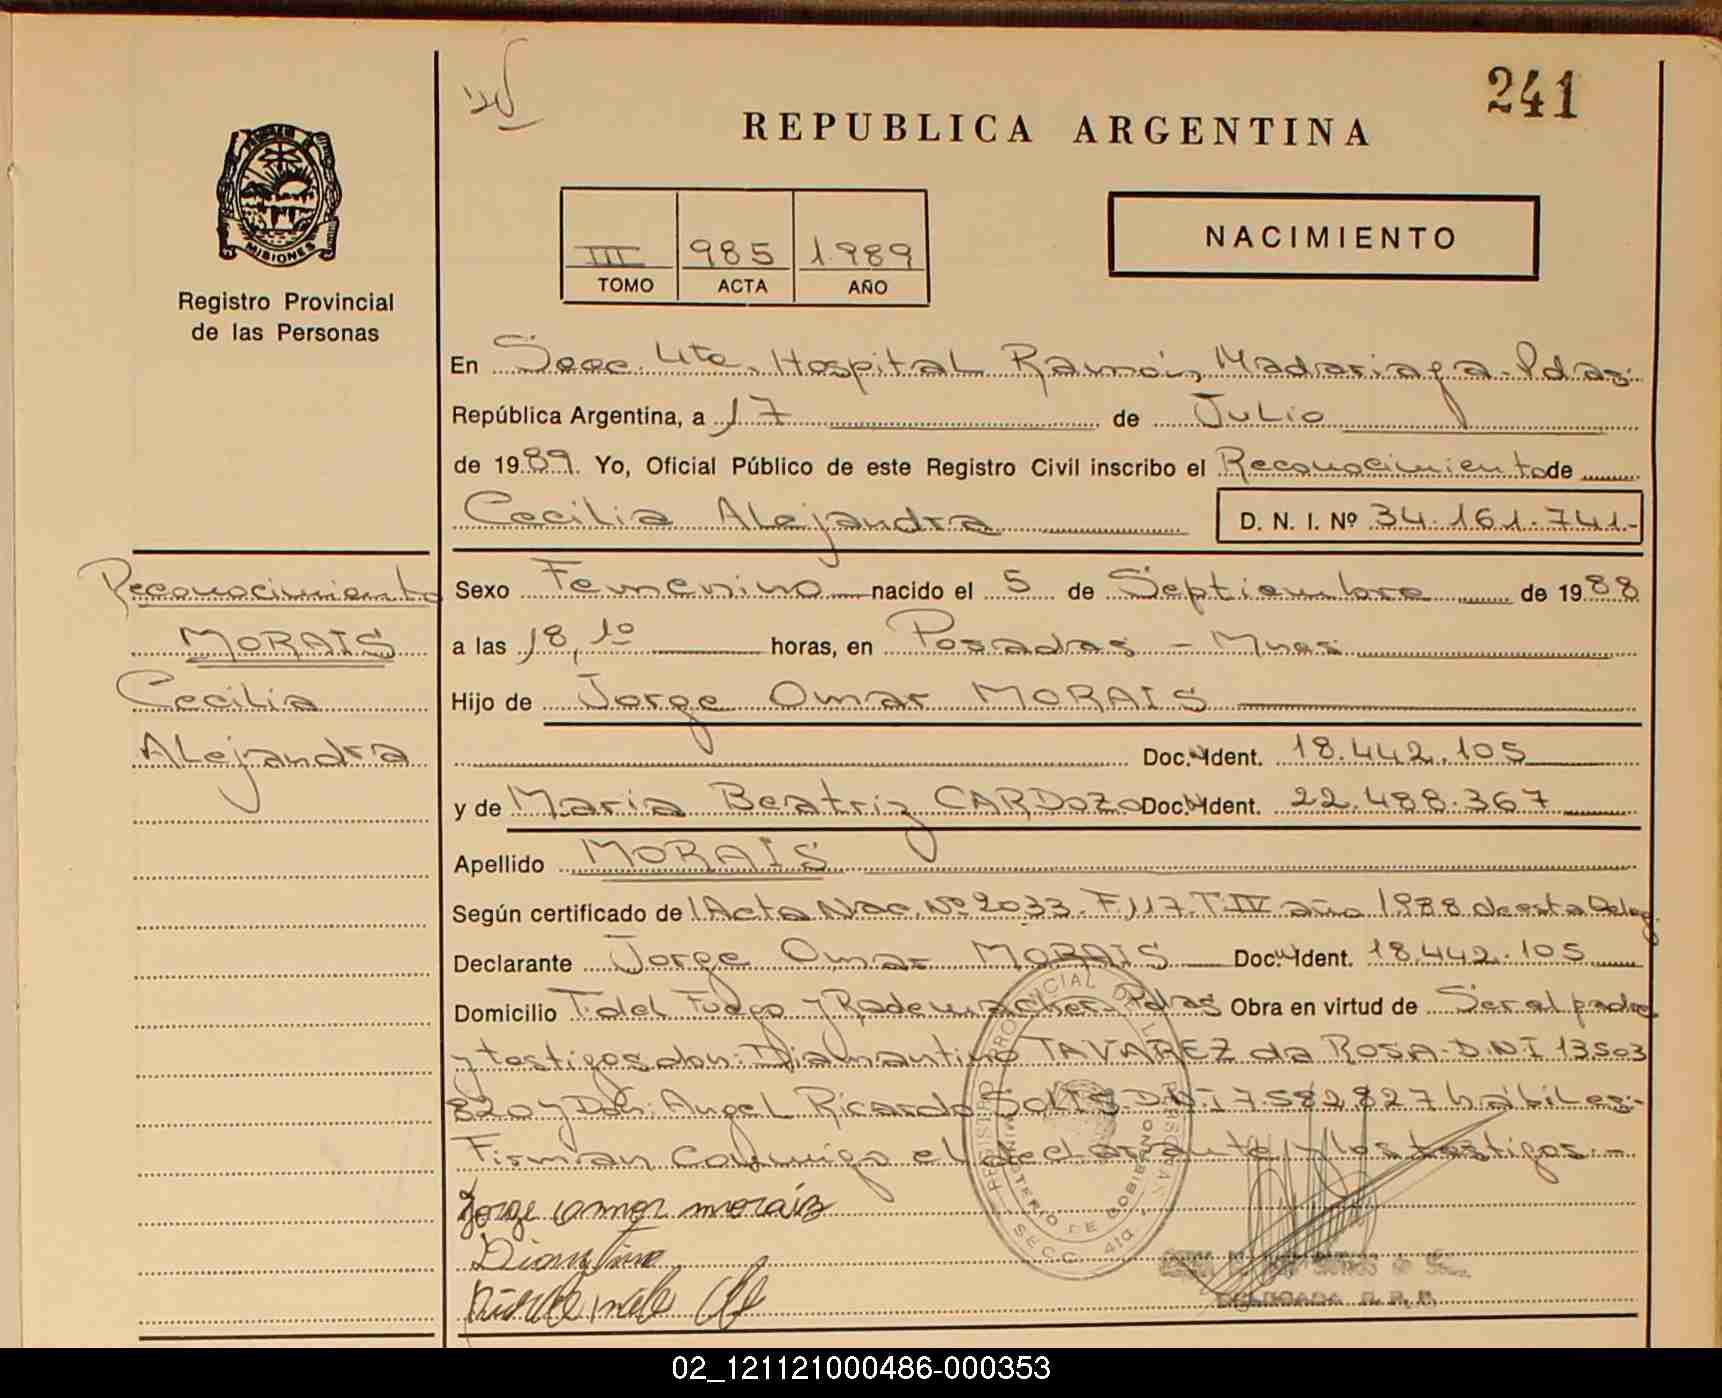 241
REPUBLICA ARGENTINA
MISIONES
Registro Provincial
de las Personas
III 985 1.989
TOMO ACTA AÑO
NACIMIENTO
En Secc. 4ta. Hospital Ramón Madariaga - Pdas.
República Argentina, a 17 de Julio
de 1989. Yo, Oficial Público de este Registro Civil inscribo el Reconocimiento de
Cecilia Alejandra D. N. I. Nº 34.161.741.-
Reconocimiento
MORAIS
Cecilia
Alejandra
Sexo Femenino nacido el 5 de Septiembre de 1988
a las 18,10 horas, en Posadas - Mnes
Hijo de Jorge Omar MORAIS
Doc. Ident. 18.442.105
y de Maria Beatriz CARDOZO Doc. Ident. 22.488.367
Apellido MORAIS
Según certificado de Acta Nac. Nº 2033. F. 117. T IV año 1988 de esta Deleg.
Declarante Jorge Omar MORAIS Doc. Ident. 18.442.105
Domicilio T. del Fuego y Rademacher Pdas Obra en virtud de Ser el padre
y testigos don: Diamantino TAVAREZ da ROSA - D.N.I 13503
820 y Don: Angel Ricardo SOLIS - D.N.I 7582827 hábiles.-
Firman conmigo el declarante y los testigos.-
Jorge omar morais
REGISTRO PROVINCIAL DE LAS PERSONAS
MINISTERIO DE GOBIERNO
SECC. 4ta.
DELEGADA R. P. P.
02_121121000486-000353